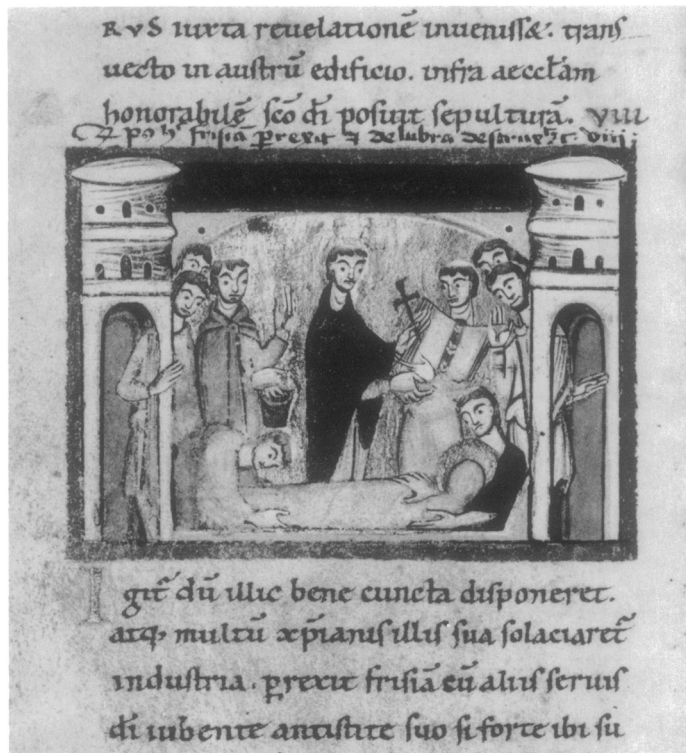 RVS iuxta reuelationē inueniss&. trans
uecto in austrū edificio. infra aeccłam
honorabilē scō dī posuit sepulturā. VIII
po h frisiā prexit 7 delubra destruxit. viiij
Igit̄ dū illic bene cuncta disponeret.
atq; multū xp̄ianis illis sua solaciaret̄
industria. prexit frisiā cū aliis seruis
dī iubente antistite suo si forte ibi su